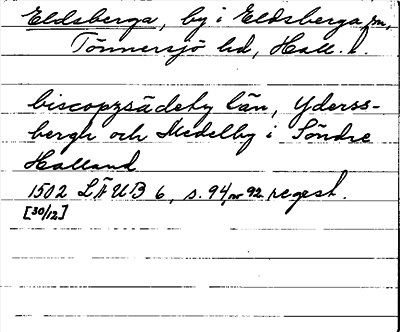 Eldsberga, by i Eldsberga sn,
Tönnersjö hd, Hall. l.
biscopzsädeby län, Yderss-
bergh och Medelby i Söndre
Halland
1502 LÄUB 6, s. 94, nr 92, regest.
[30/12]